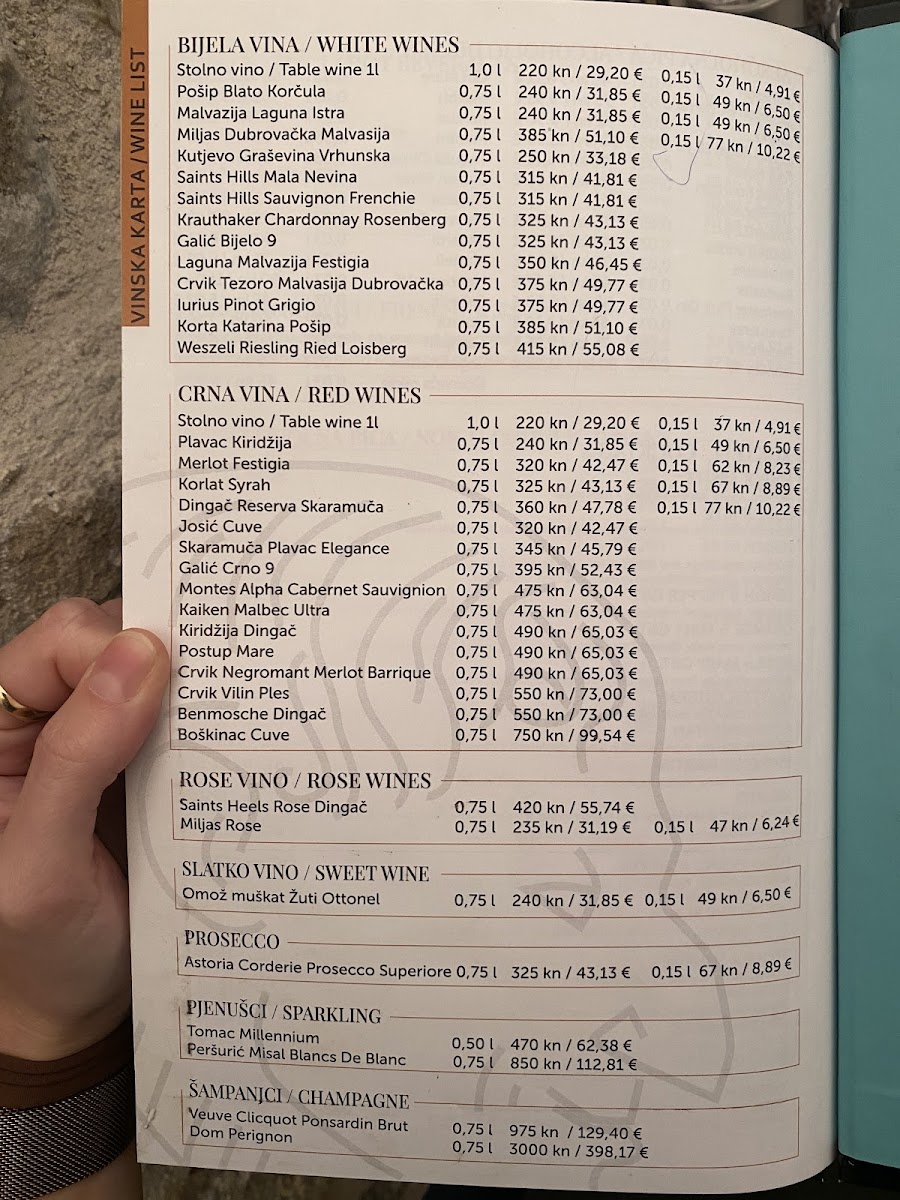 VINSKA KARTA / WINE LIST
BIJELA VINA / WHITE WINES
Stolno vino / Table wine 1l 1,0 l 220 kn / 29,20 € 0,15 l 37 kn / 4,91 €
Pošip Blato Korčula 0,75 l 240 kn / 31,85 € 0,15 l 49 kn / 6,50 €
Malvazija Laguna Istra 0,75 l 240 kn / 31,85 € 0,15 l 49 kn / 6,50 €
Miljas Dubrovačka Malvasija 0,75 l 385 kn / 51,10 € 0,15 l 77 kn / 10,22 €
Kutjevo Graševina Vrhunska 0,75 l 250 kn / 33,18 €
Saints Hills Mala Nevina 0,75 l 315 kn / 41,81 €
Saints Hills Sauvignon Frenchie 0,75 l 315 kn / 41,81 €
Krauthaker Chardonnay Rosenberg 0,75 l 325 kn / 43,13 €
Galić Bijelo 9 0,75 l 325 kn / 43,13 €
Laguna Malvazija Festigia 0,75 l 350 kn / 46,45 €
Crvik Tezoro Malvasija Dubrovačka 0,75 l 375 kn / 49,77 €
Iurius Pinot Grigio 0,75 l 375 kn / 49,77 €
Korta Katarina Pošip 0,75 l 385 kn / 51,10 €
Weszeli Riesling Ried Loisberg 0,75 l 415 kn / 55,08 €
CRNA VINA / RED WINES
Stolno vino / Table wine 1l 1,0 l 220 kn / 29,20 € 0,15 l 37 kn / 4,91 €
Plavac Kiridžija 0,75 l 240 kn / 31,85 € 0,15 l 49 kn / 6,50 €
Merlot Festigia 0,75 l 320 kn / 42,47 € 0,15 l 62 kn / 8,23 €
Korlat Syrah 0,75 l 325 kn / 43,13 € 0,15 l 67 kn / 8,89 €
Dingač Reserva Skaramuča 0,75 l 360 kn / 47,78 € 0,15 l 77 kn / 10,22 €
Josić Cuve 0,75 l 320 kn / 42,47 €
Skaramuča Plavac Elegance 0,75 l 345 kn / 45,79 €
Galić Crno 9 0,75 l 395 kn / 52,43 €
Montes Alpha Cabernet Sauvignion 0,75 l 475 kn / 63,04 €
Kaiken Malbec Ultra 0,75 l 475 kn / 63,04 €
Kiridžija Dingač 0,75 l 490 kn / 65,03 €
Postup Mare 0,75 l 490 kn / 65,03 €
Crvik Negromant Merlot Barrique 0,75 l 490 kn / 65,03 €
Crvik Vilin Ples 0,75 l 550 kn / 73,00 €
Benmosche Dingač 0,75 l 550 kn / 73,00 €
Boškinac Cuve 0,75 l 750 kn / 99,54 €
ROSE VINO / ROSE WINES
Saints Heels Rose Dingač 0,75 l 420 kn / 55,74 €
Miljas Rose 0,75 l 235 kn / 31,19 € 0,15 l 47 kn / 6,24 €
SLATKO VINO / SWEET WINE
Omož muškat Žuti Ottonel 0,75 l 240 kn / 31,85 € 0,15 l 49 kn / 6,50 €
PROSECCO
Astoria Corderie Prosecco Superiore 0,75 l 325 kn / 43,13 € 0,15 l 67 kn / 8,89 €
PJENUŠCI / SPARKLING
Tomac Millennium 0,50 l 470 kn / 62,38 €
Peršurić Misal Blancs De Blanc 0,75 l 850 kn / 112,81 €
ŠAMPANJCI / CHAMPAGNE
Veuve Clicquot Ponsardin Brut 0,75 l 975 kn / 129,40 €
Dom Perignon 0,75 l 3000 kn / 398,17 €